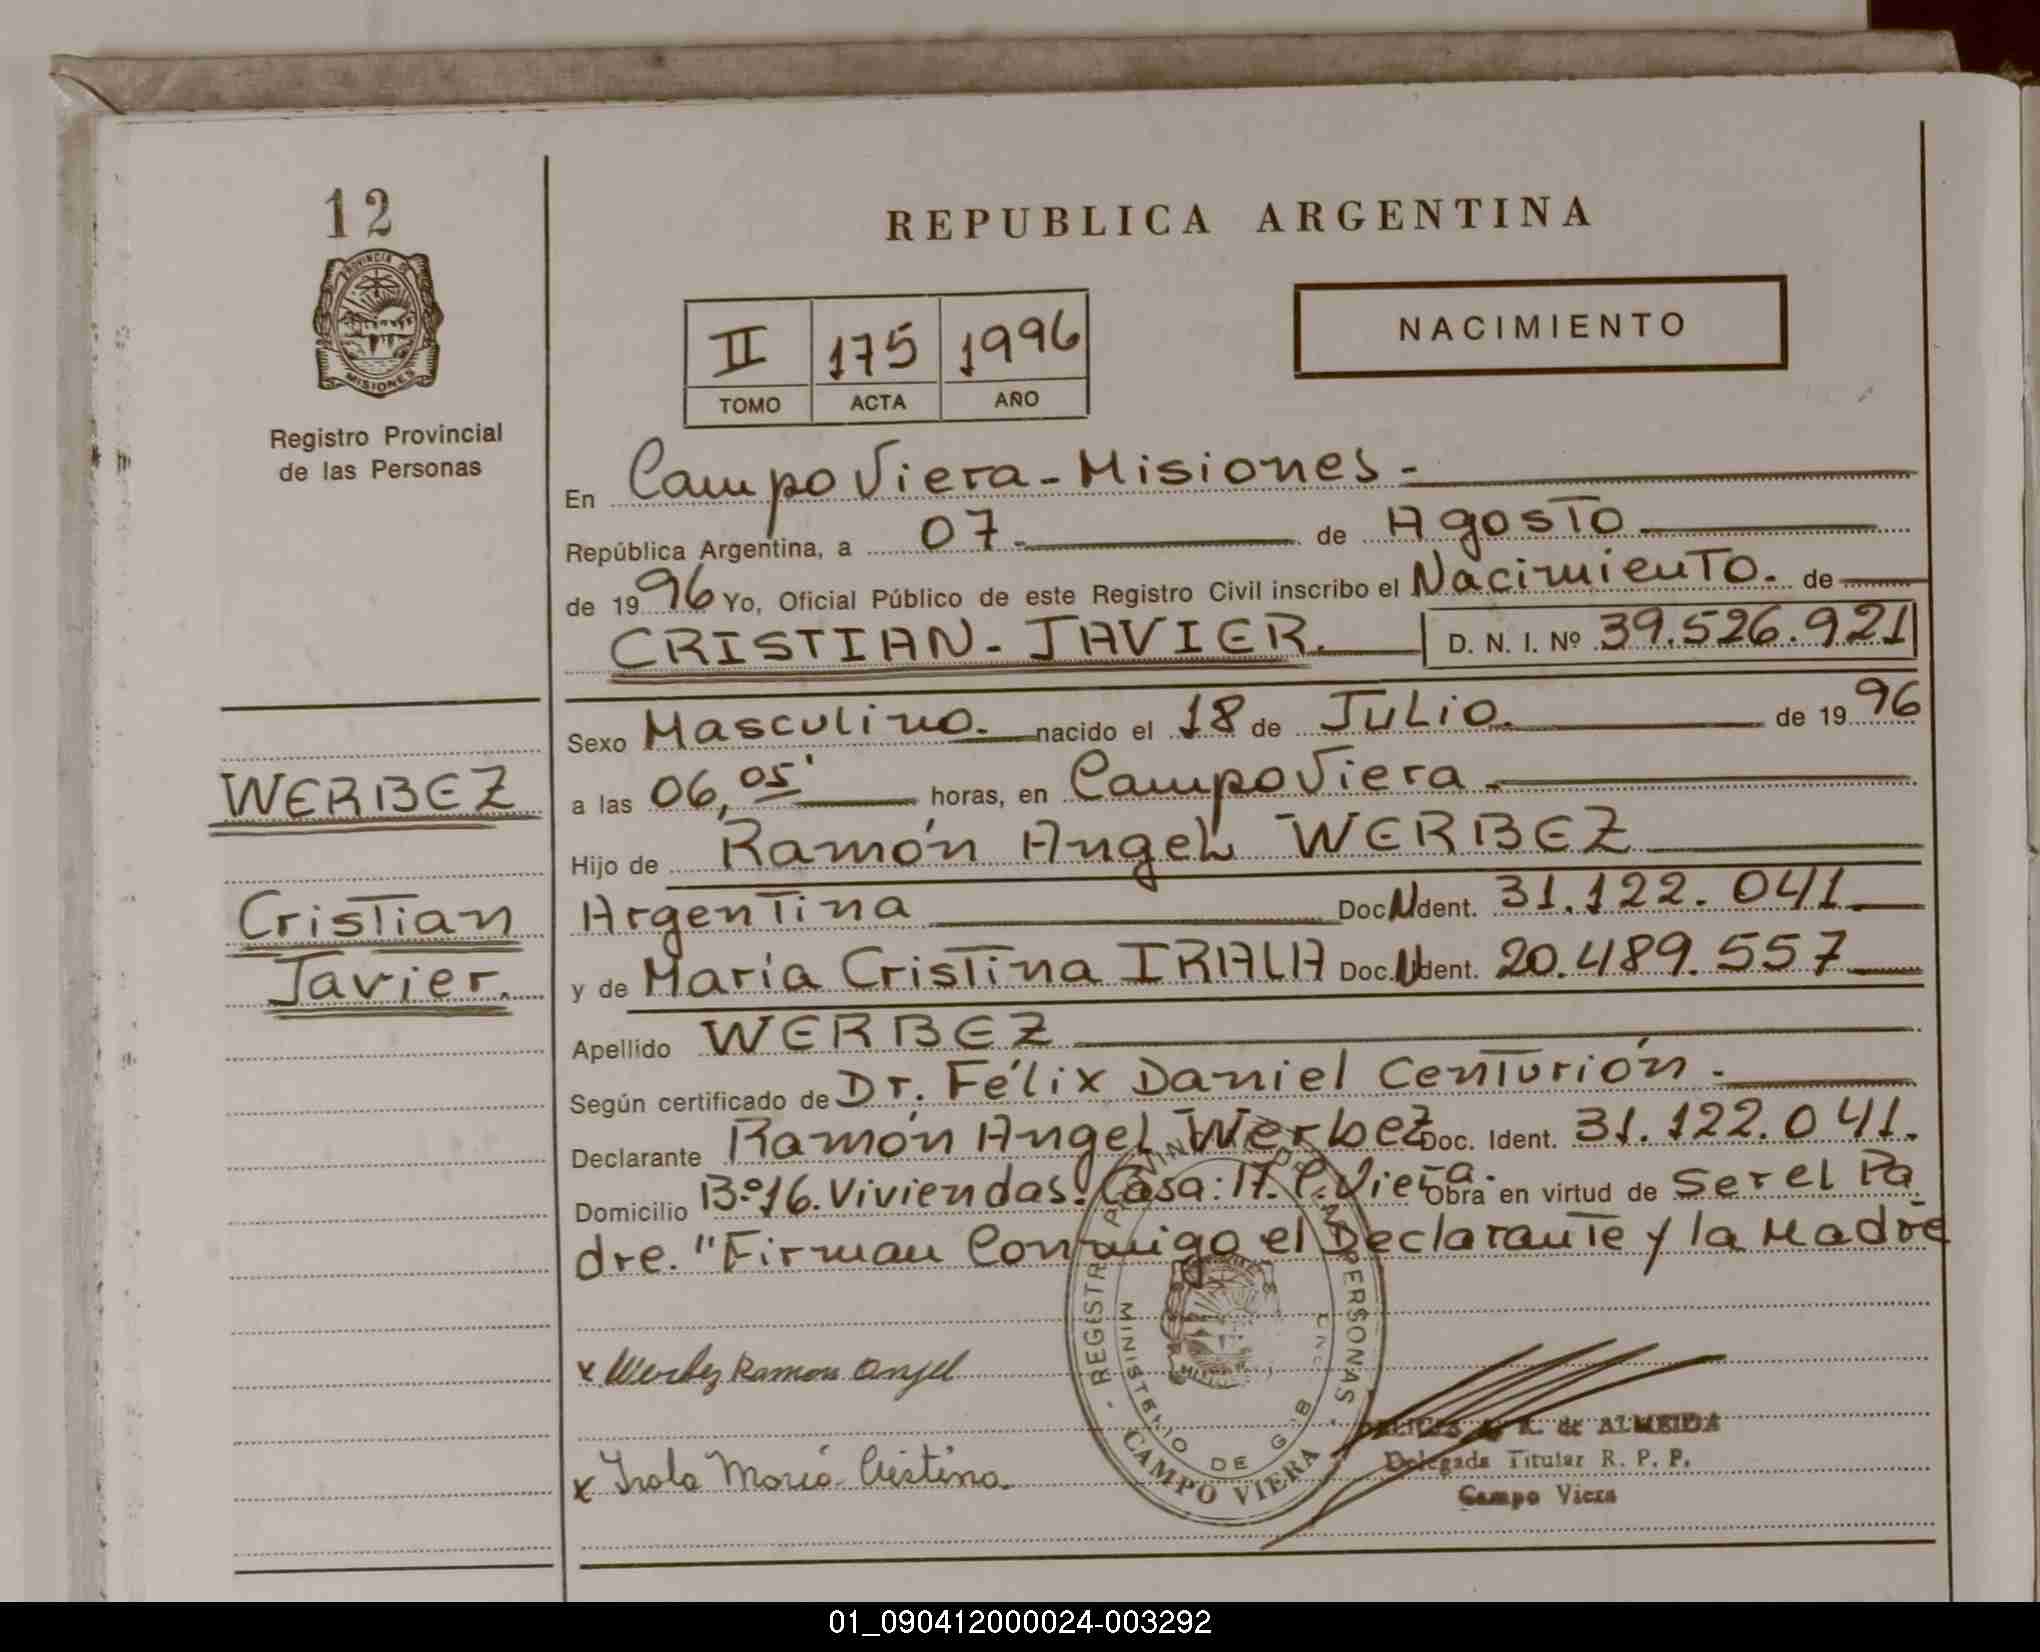 12
PROVINCIA DE
MISIONES
Registro Provincial
de las Personas
REPUBLICA ARGENTINA
II 175 1996
TOMO ACTA AÑO
NACIMIENTO
En Campo Viera - Misiones -
República Argentina, a 07 - de Agosto
de 1996 Yo, Oficial Público de este Registro Civil inscribo el Nacimiento. de
CRISTIAN - JAVIER. D. N. I. Nº 39.526.921
Sexo Masculino. nacido el 18 de Julio. de 1996
WERBEZ
a las 06,05' horas, en Campo Viera -
Hijo de Ramón Angel WERBEZ
Cristian
Javier.
Argentina Doc. N Ident. 31.122.041
y de María Cristina IRALA Doc. N Ident. 20.489.557
Apellido WERBEZ
Según certificado de Dr. Félix Daniel Centurión -
Declarante Ramón Angel Werbez Doc. Ident. 31.122.041.
Domicilio Bº 16. Viviendas. Casa: 17. C. Viera. Obra en virtud de ser el Pa
dre. "Firman Conmigo el Declarante y la Madre
x Werbez Ramon Angel
x Irala Maria Cristina.
REGISTR PERSONAS
MINISTERIO DE GOB
CAMPO VIERA
de ALMEIDA
Delegada Titular R. P. P.
Campo Viera
01_090412000024-003292